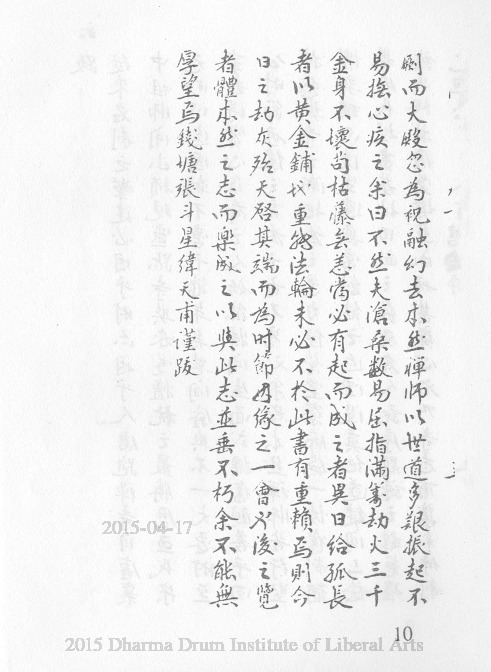 剛而大殿忽為祝融幻去本然禅师以世道多艱振起不
易撫心疚之余曰不然夫滄桑數易屈指滿籌劫火三千
金身不壞苟枯藤無恙當必有起而成之者異日給孤長
者以黄金鋪地重轉法輪未必不於此書有重賴焉則今
日之劫灰殆天啓其端而為时節因缘之一會乎後之覽
者體本然之志而樂成之以與此志並垂不朽余不能無
厚望焉錢塘張斗星緯天甫谨跋
2015-04-17
10
2015 Dharma Drum Institute of Liberal Arts